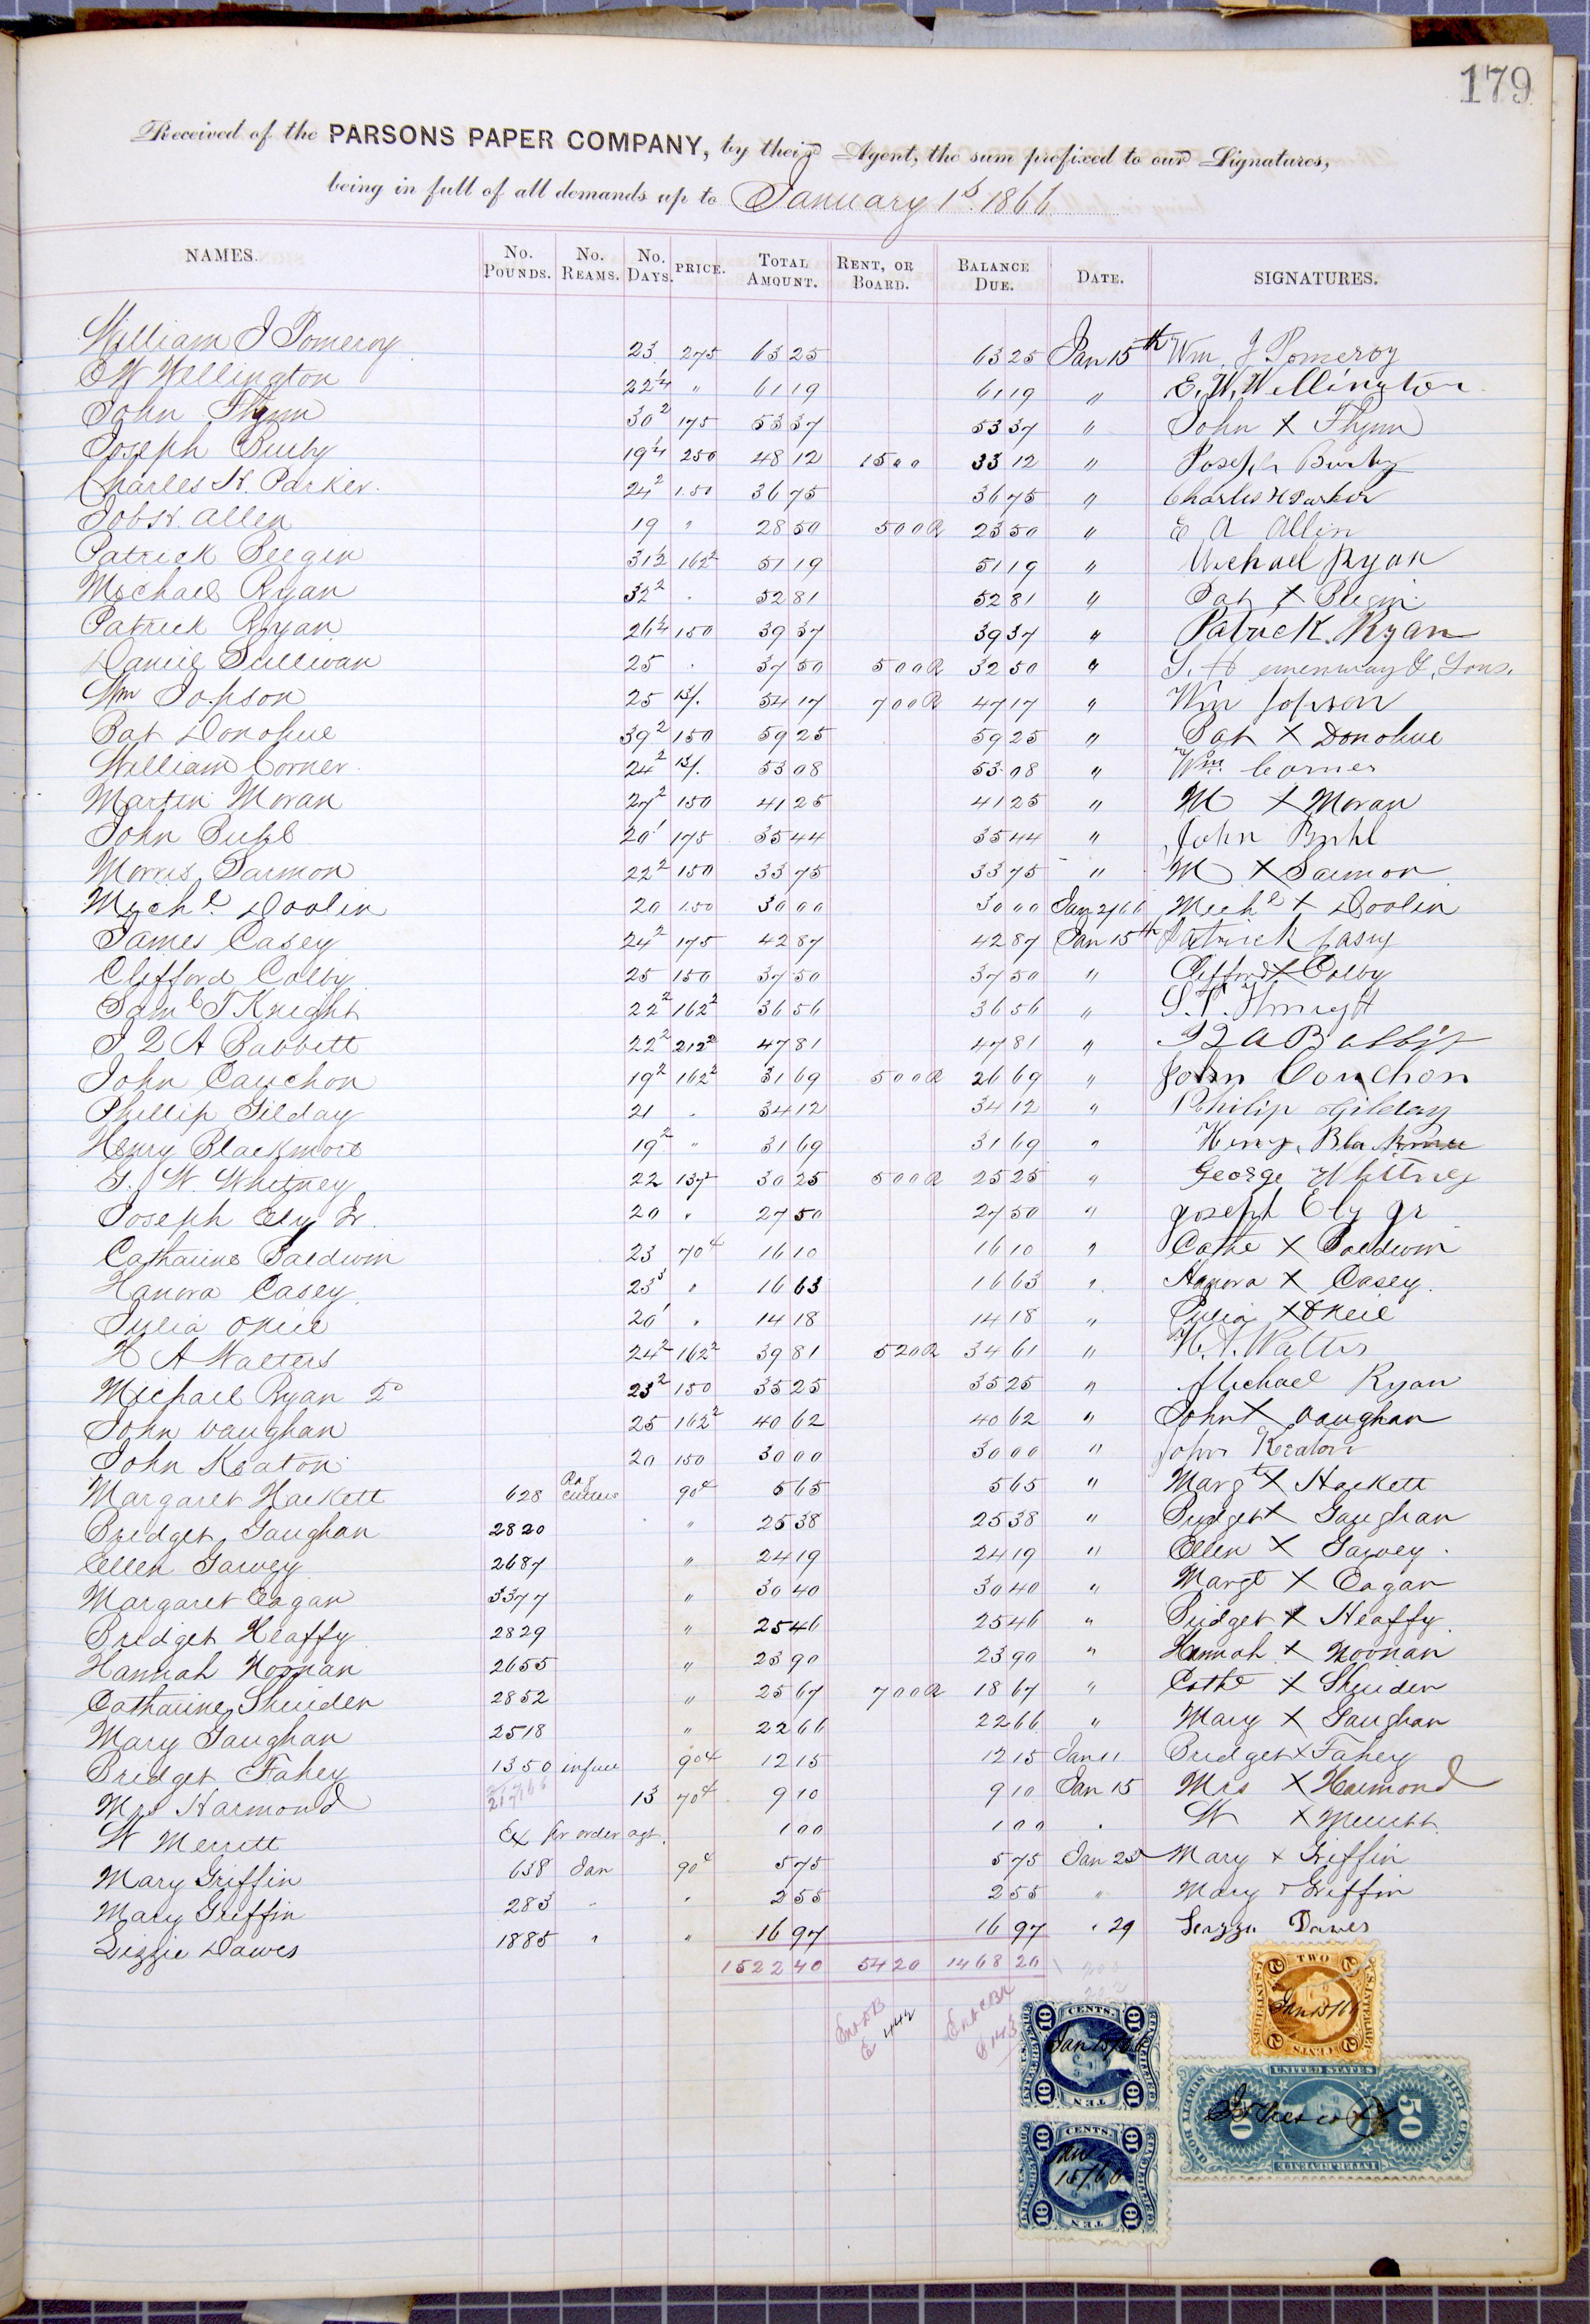 179
Received of the PARSONS PAPER COMPANY, by their Agent, the sum prefixed to our Signatures,
being in full of all demands up to January 1st. 1866
NAMES. No. POUNDS. No. REAMS. No. DAYS. PRICE. TOTAL AMOUNT. RENT, OR BOARD. BALANCE DUE. DATE. SIGNATURES.
William J Pomeroy 23 275 63 25 63 25 Jan 15th Wm J Pomeroy
E W Wellington 22 1/4 " 61 19 61 19 " E. W. Wellington
John Flynn 30 2 175 53 37 53 37 " John X Flynn
Joseph Burby 19 1/4 250 48 12 15 00 33 12 " Joseph Burby
Charles H. Parker 24 2 1.50 36 75 36 75 " Charles H Parker
Job H. Allen 19 " 28 50 5 00 R 23 50 " E A Allen
Patrick Beegin 31 1/2 162 2 51 19 51 19 " Michael Ryan
Michael Ryan 32 2 " 52 81 52 81 " Pat X Beegin
Patrick Ryan 26 1/4 150 39 37 39 37 " Patrick Ryan
Daniel Sullivan 25 " 37 50 5 00 R 32 50 " S. Hemenway & Sons.
Wm Jopson 25 13/. 54 17 7 00 R 47 17 " Wm Jopson
Pat Donohue 39 2 150 59 25 59 25 " Pat X Donohue
William Corner 24 2 13/. 53 08 53 08 " Wm. Corner
Martin Moran 27 2 150 41 25 41 25 " M X Moran
John Buhl 20 1 175 35 44 35 44 " John Buhl
Morris Sarmon 22 2 150 33 75 33 75 " M X Sarmon
Mich l. Doolin 20 1.50 30 00 30 00 Jan 2/66 Mich l X Doolin
James Casey 24 2 175 42 87 42 87 Jan 15th Patrick Casey
Clifford Colby 25 150 37 50 37 50 " Clifford X Colby
Saml T Knight 22 2 162 2 36 56 36 56 " S. T. Knight
J Q A Babbitt 22 2 212 2 47 81 47 81 " J Q A Babbit
John Cauchon 19 2 162 2 31 69 5 00 R 26 69 " John Conchon
Phillip Gilday 21 " 34 12 34 12 " Philip Gilday
Henry Blackmore 19 2 " 31 69 31 69 " Henry Blackmore
G. W. Whitney 22 137 30 25 5 00 R 25 25 " George Whitney
Joseph Ely Jr. 20 " 27 50 27 50 " Joseph Ely Jr
Catharine Baldwin 23 70 ¢ 16 10 16 10 " Cathe X Baldwin
Hanora Casey 23 3 " 16 63 16 63 " Hanora X Casey
Julia ONeil 20 1 " 14 18 14 18 " Julia X ONeil
H A Walters 24 2 162 2 39 81 5 20 R 34 61 " H. A. Walters
Michael Ryan 2o 23 2 150 35 25 35 25 " Michael Ryan
John Vaughan 25 162 2 40 62 40 62 " John X Vaughan
John Keaton 20 150 30 00 30 00 " John Keaton
Margaret Hackett 628 Rag Cutters 90 ¢ 5 65 5 65 " Margt X Hackett
Bridget Gaughan 2820 " 25 38 25 38 " Bridget X Gaughan
Ellen Garvey 2687 " 24 19 24 19 " Ellen X Garvey
Margaret Eagan 3377 " 30 40 30 40 " Margt X Eagan
Bridget Heaffy 2829 " 25 46 25 46 " Bridget X Heaffy
Hannah Noonan 2655 " 23 90 23 90 " Hannah X Noonan
Catharine Shuiden 2852 " 25 67 7 00 R 18 67 " Cathe X Shuiden
Mary Gaughan 2518 " 22 66 22 66 " Mary X Gaughan
Bridget Fahey 1350 in full 90 ¢ 12 15 12 15 Jan 11 Bridget X Fahey
Mrs Harmond 13 70 ¢ 9 10 9 10 Jan 15 Mrs X Harmond
W Merritt Ex pr order agt. 1 00 1 00 " W X Merritt
Mary Griffin 638 Jan 90 ¢ 5 75 5 75 Jan 25 Mary X Griffin
Mary Griffin 283 " " 2 55 2 55 " Mary X Griffin
Lizzie Dawes 1885 " " 16 97 16 97 " 29 Lizzie Dawes
1522 40 54 20 1468 20
TWO CENTS
U.S. INTER. REV.
Jan 15/66
10 CENTS. 10
INTER. REVENUE
Jan 15/66
10 TEN 10
UNITED STATES
FIFTY CENTS
50 50
INTER. REVENUE
10 CENTS. 10
Jan 15/66
10 TEN 10